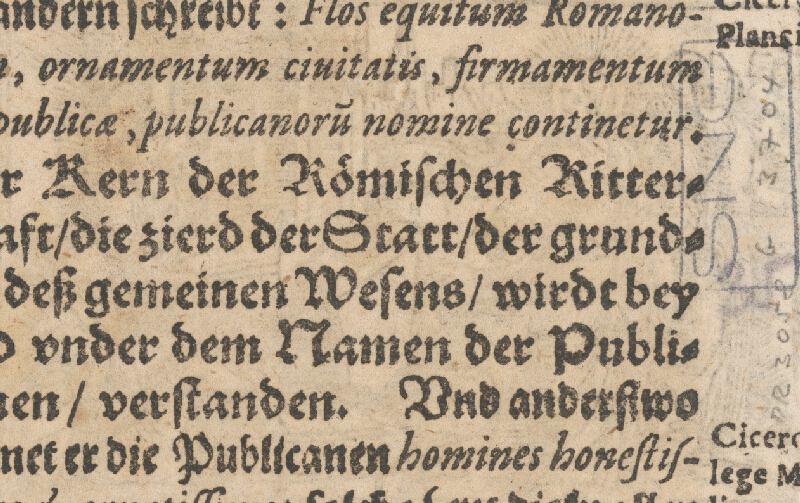 andern schreibt: Flos equitum Romano-
, ornamentum ciuitatis, firmamentum
publicæ, publicanorũ nomine continetur.
r Kern der Römischen Ritter-
aft/die zierd der Statt/der grund-
deß gemeinen Wesens/ wirdt bey
vnder dem Namen der Publi-
nen/ verstanden. Vnd anderstwo
net er die Publicanen homines honestis-
Cicero
lege M
Planci